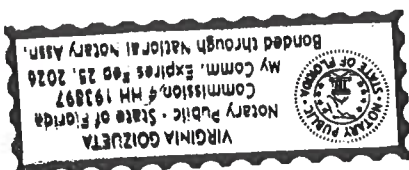 VIRGINIA GOIZUETA
Notary Public - State of Florida
Commission # HH 193897
My Comm. Expires Feb 25, 2026
Bonded through National Notary Assn.
NOTARY PUBLIC
STATE OF FLORIDA